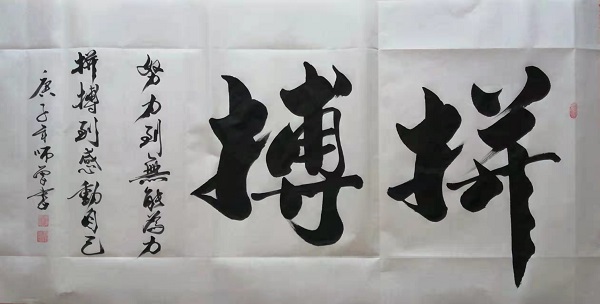 拼搏
努力到無能為力
拼搏到感動自己
庚子年